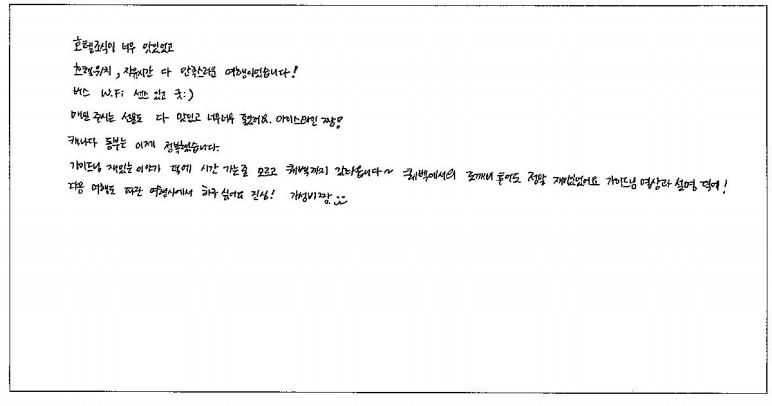 호텔조식이 너무 맛있었고
호텔위치, 자유시간 다 만족스러운 여행이었습니다!
버스 WiFi 센스 있고 굿:)
매일 주시는 선물도 다 맛있고 너무너무 좋았어요. 아이스와인 짱!
캐나다 동부는 이제 정복했습니다.
가이드님 재밌는 이야기 덕에 시간 가는줄 모르고 퀘벡까지 갔다옵니다~ 퀘벡에서의 도깨비 투어도 정말 재밌었어요 가이드님 영상과 설명 덕에!
다음 여행도 파란 여행사에서 하구 싶어요 진심! 가성비짱